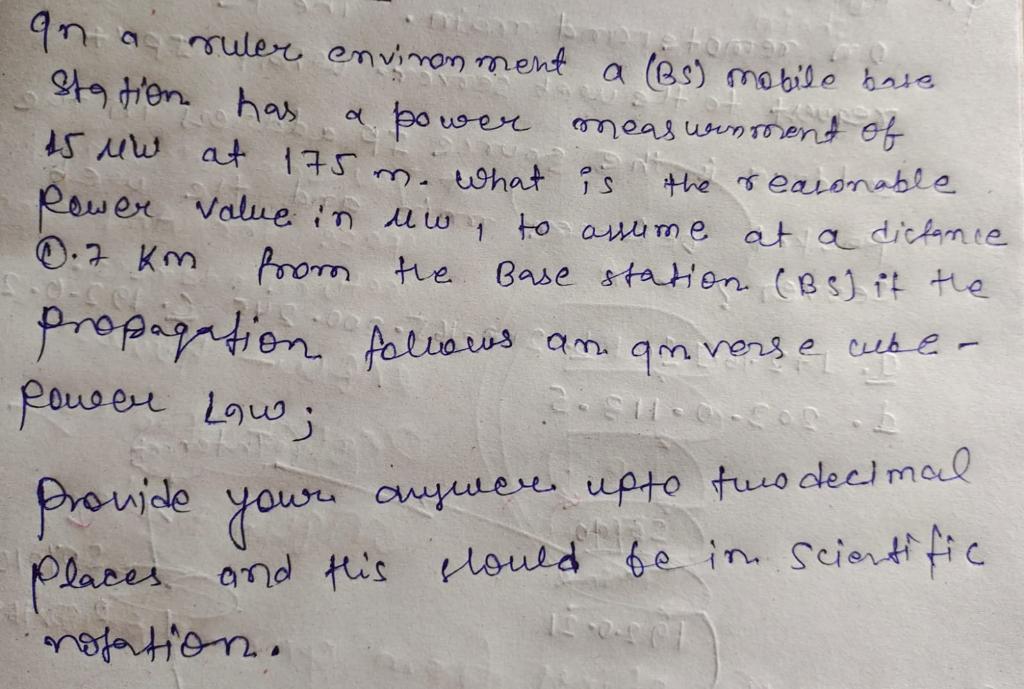 In a ruler environment a (BS) mobile base
Station has a power measurnment of
15 uw at 175 m. what is the reasonable
Power value in uw, to assume at a distance
0.7 Km from the Base station (BS) if the
propagation follows an inverse cube-
power Law;
provide your answer upto two decimal
places and this should be in scientific
notation.